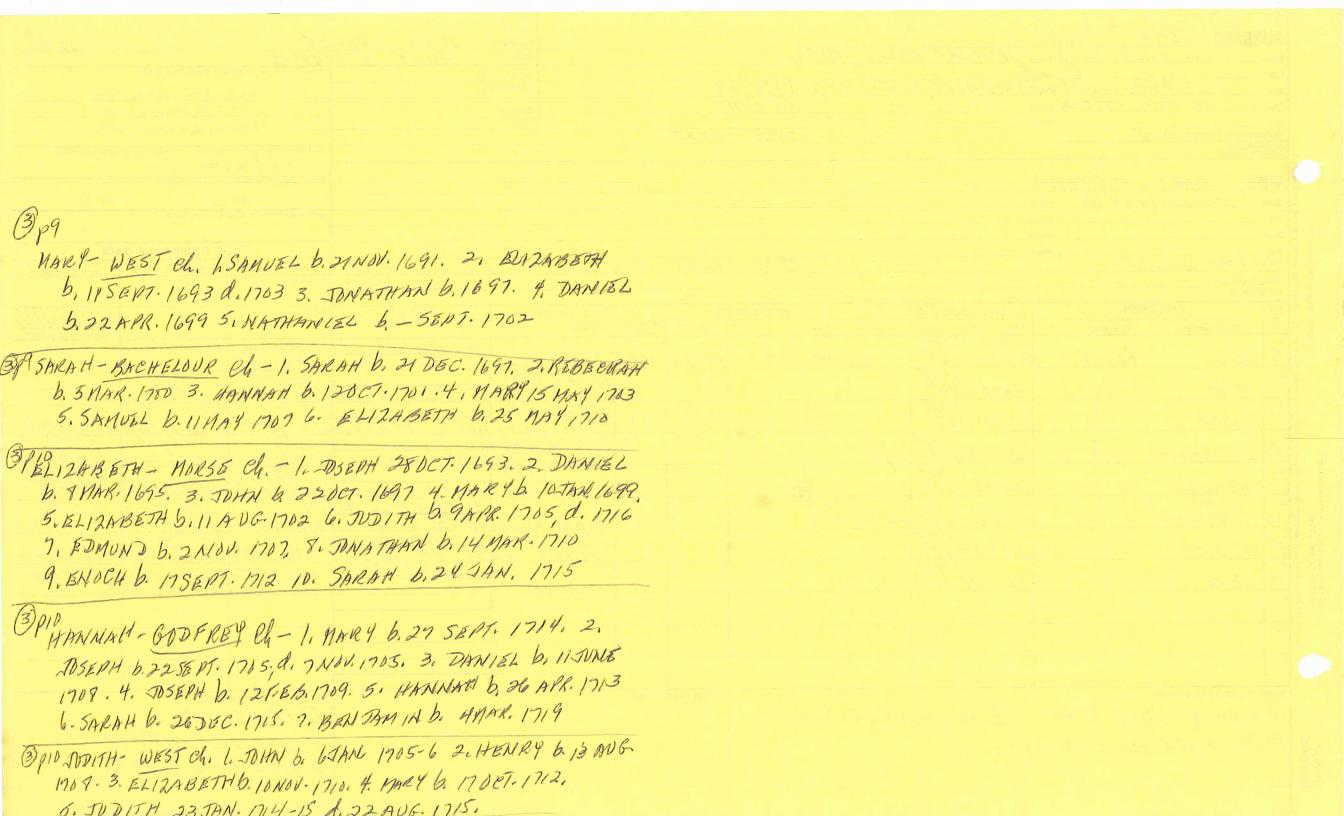 ③ p9
MARY- WEST Ch. 1. SAMUEL b. 21 NOV. 1691. 2. ELIZABETH
b. 11 SEPT. 1693 d. 1703 3. JONATHAN b. 1697. 4. DANIEL
b. 22 APR. 1699 5. NATHANIEL b. — SEPT. 1702
③p9 SARAH - BACHELOUR Ch - 1. SARAH b. 21 DEC. 1697. 2. REBECKAH
b. 5 MAR. 1700 3. HANNAH b. 12 OCT. 1701. 4. MARY 15 MAY 1703
5. SAMUEL b. 11 MAY 1707 6. ELIZABETH b. 25 MAY 1710
③p10
ELIZABETH - MORSE Ch. - 1. JOSEPH 28 OCT. 1693. 2. DANIEL
b. 8 MAR. 1695. 3. JOHN b. 22 OCT. 1697 4. MARY b. 10 JAN. 1699.
5. ELIZABETH b. 11 AUG. 1702 6. JUDITH b. 9 APR. 1705, d. 1716
7. EDMUND b. 2 NOV. 1707, 8. JONATHAN b. 14 MAR. 1710
9. ENOCH b. 17 SEPT. 1712 10. SARAH b. 24 JAN. 1715
③p10
HANNAH - GODFREY Ch - 1. MARY b. 27 SEPT. 1714. 2.
JOSEPH b. 22 SEPT. 1705, d. 7 NOV. 1705. 3. DANIEL b. 11 JUNE
1708. 4. JOSEPH b. 12 FEB. 1709. 5. HANNAH b. 26 APR. 1713
6. SARAH b. 26 DEC. 1715. 7. BENJAMIN b. 4 MAR. 1719
③p10 JUDITH - WEST Ch. 1. JOHN b. 6 JAN 1705-6 2. HENRY b. 13 AUG.
1708. 3. ELIZABETH b. 10 NOV. 1710. 4. MARY b. 17 OCT. 1712.
5. JUDITH 23 JAN. 1714-15 d. 22 AUG. 1715.